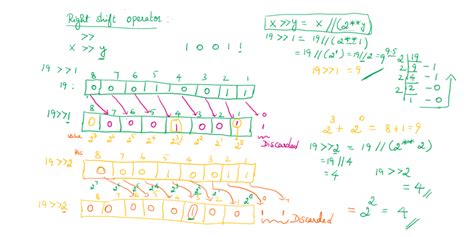 Right shift operator:
>>
x >> y
1 0 0 1 1
19 >> 1
8 7 6 5 4 3 2 1
19:
0 0 0 1 0 0 1 1
19 >> 1
0 0 0 0 1 0 0 1
Discarded
value
2^7 2^6 2^5 2^4 2^3 2^2 2^1 2^0
19 >> 2
8 7 6 5 4 3 2 1
0 0 0 1 0 0 1 1
19 >> 2
0 0 0 0 0 1 0 0
Discarded
x >> y = x // (2**y)
19 >> 1 = 19 // (2**1)
= 19 // (2^1) = 19 // 2 = 9
9.5
19 >> 1 = 9
2 19
2 9 - 1
2 4 - 1
2 2 - 0
1 - 0
2^3 + 2^0 = 8 + 1 = 9
19 >> 2 = 19 // (2** 2)
= 19 // 4
= 4
19 >> 2
= 4
= 2^2 = 4